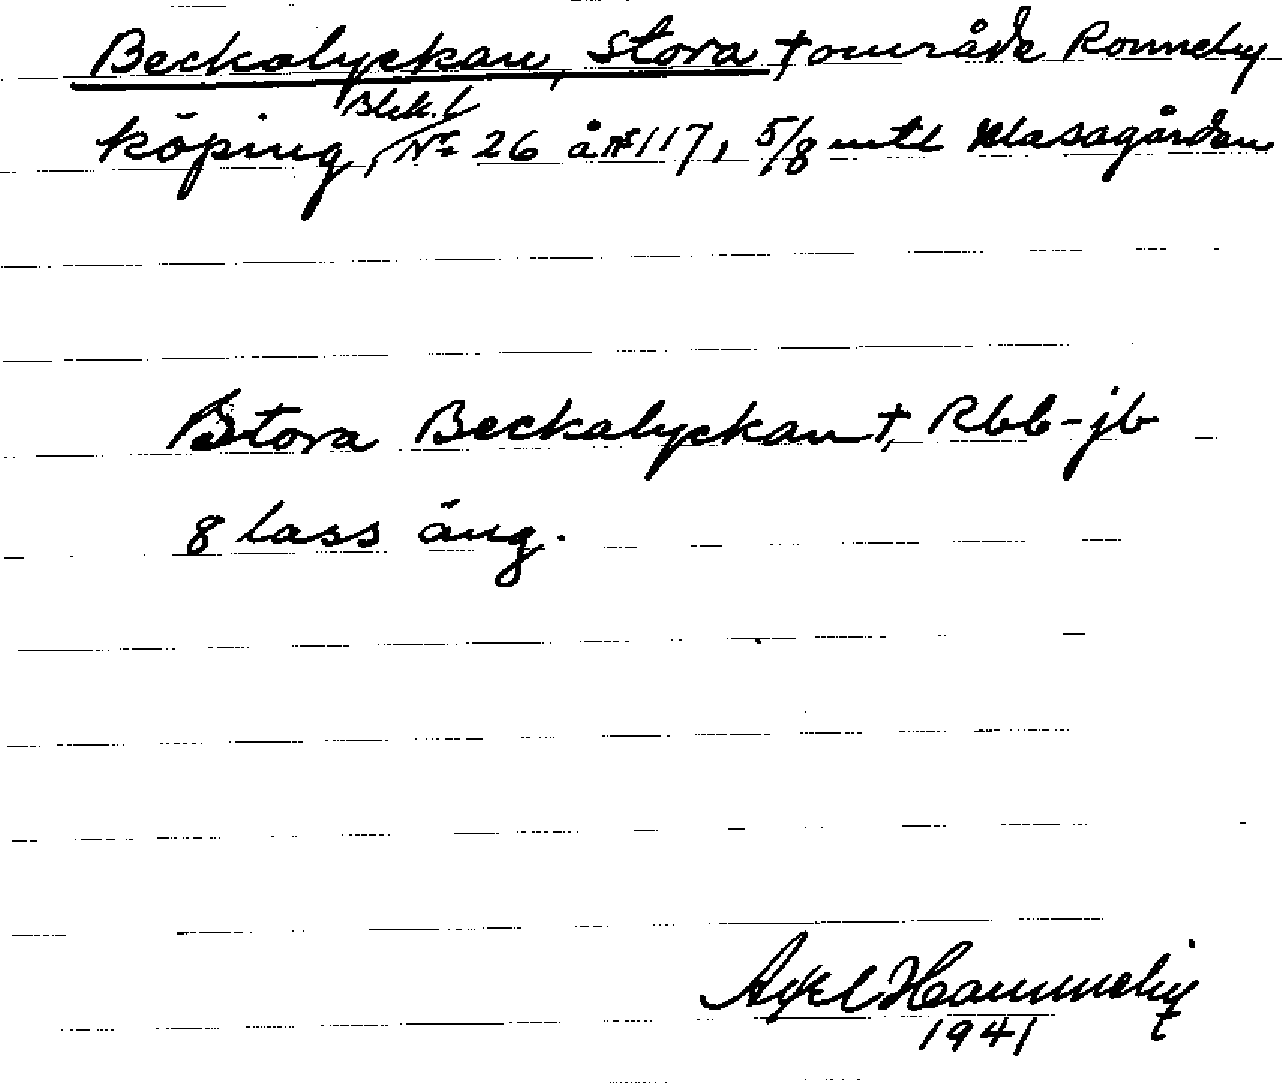 Beckalyckan, Stora † område Ronneby
Blek. l
köping, Nr 26 å nr 117, 5/8 mtl Klasagården
Stora Beckalyckan †, Rbb-jb
8 lass äng.
Axel Hammneby
1941